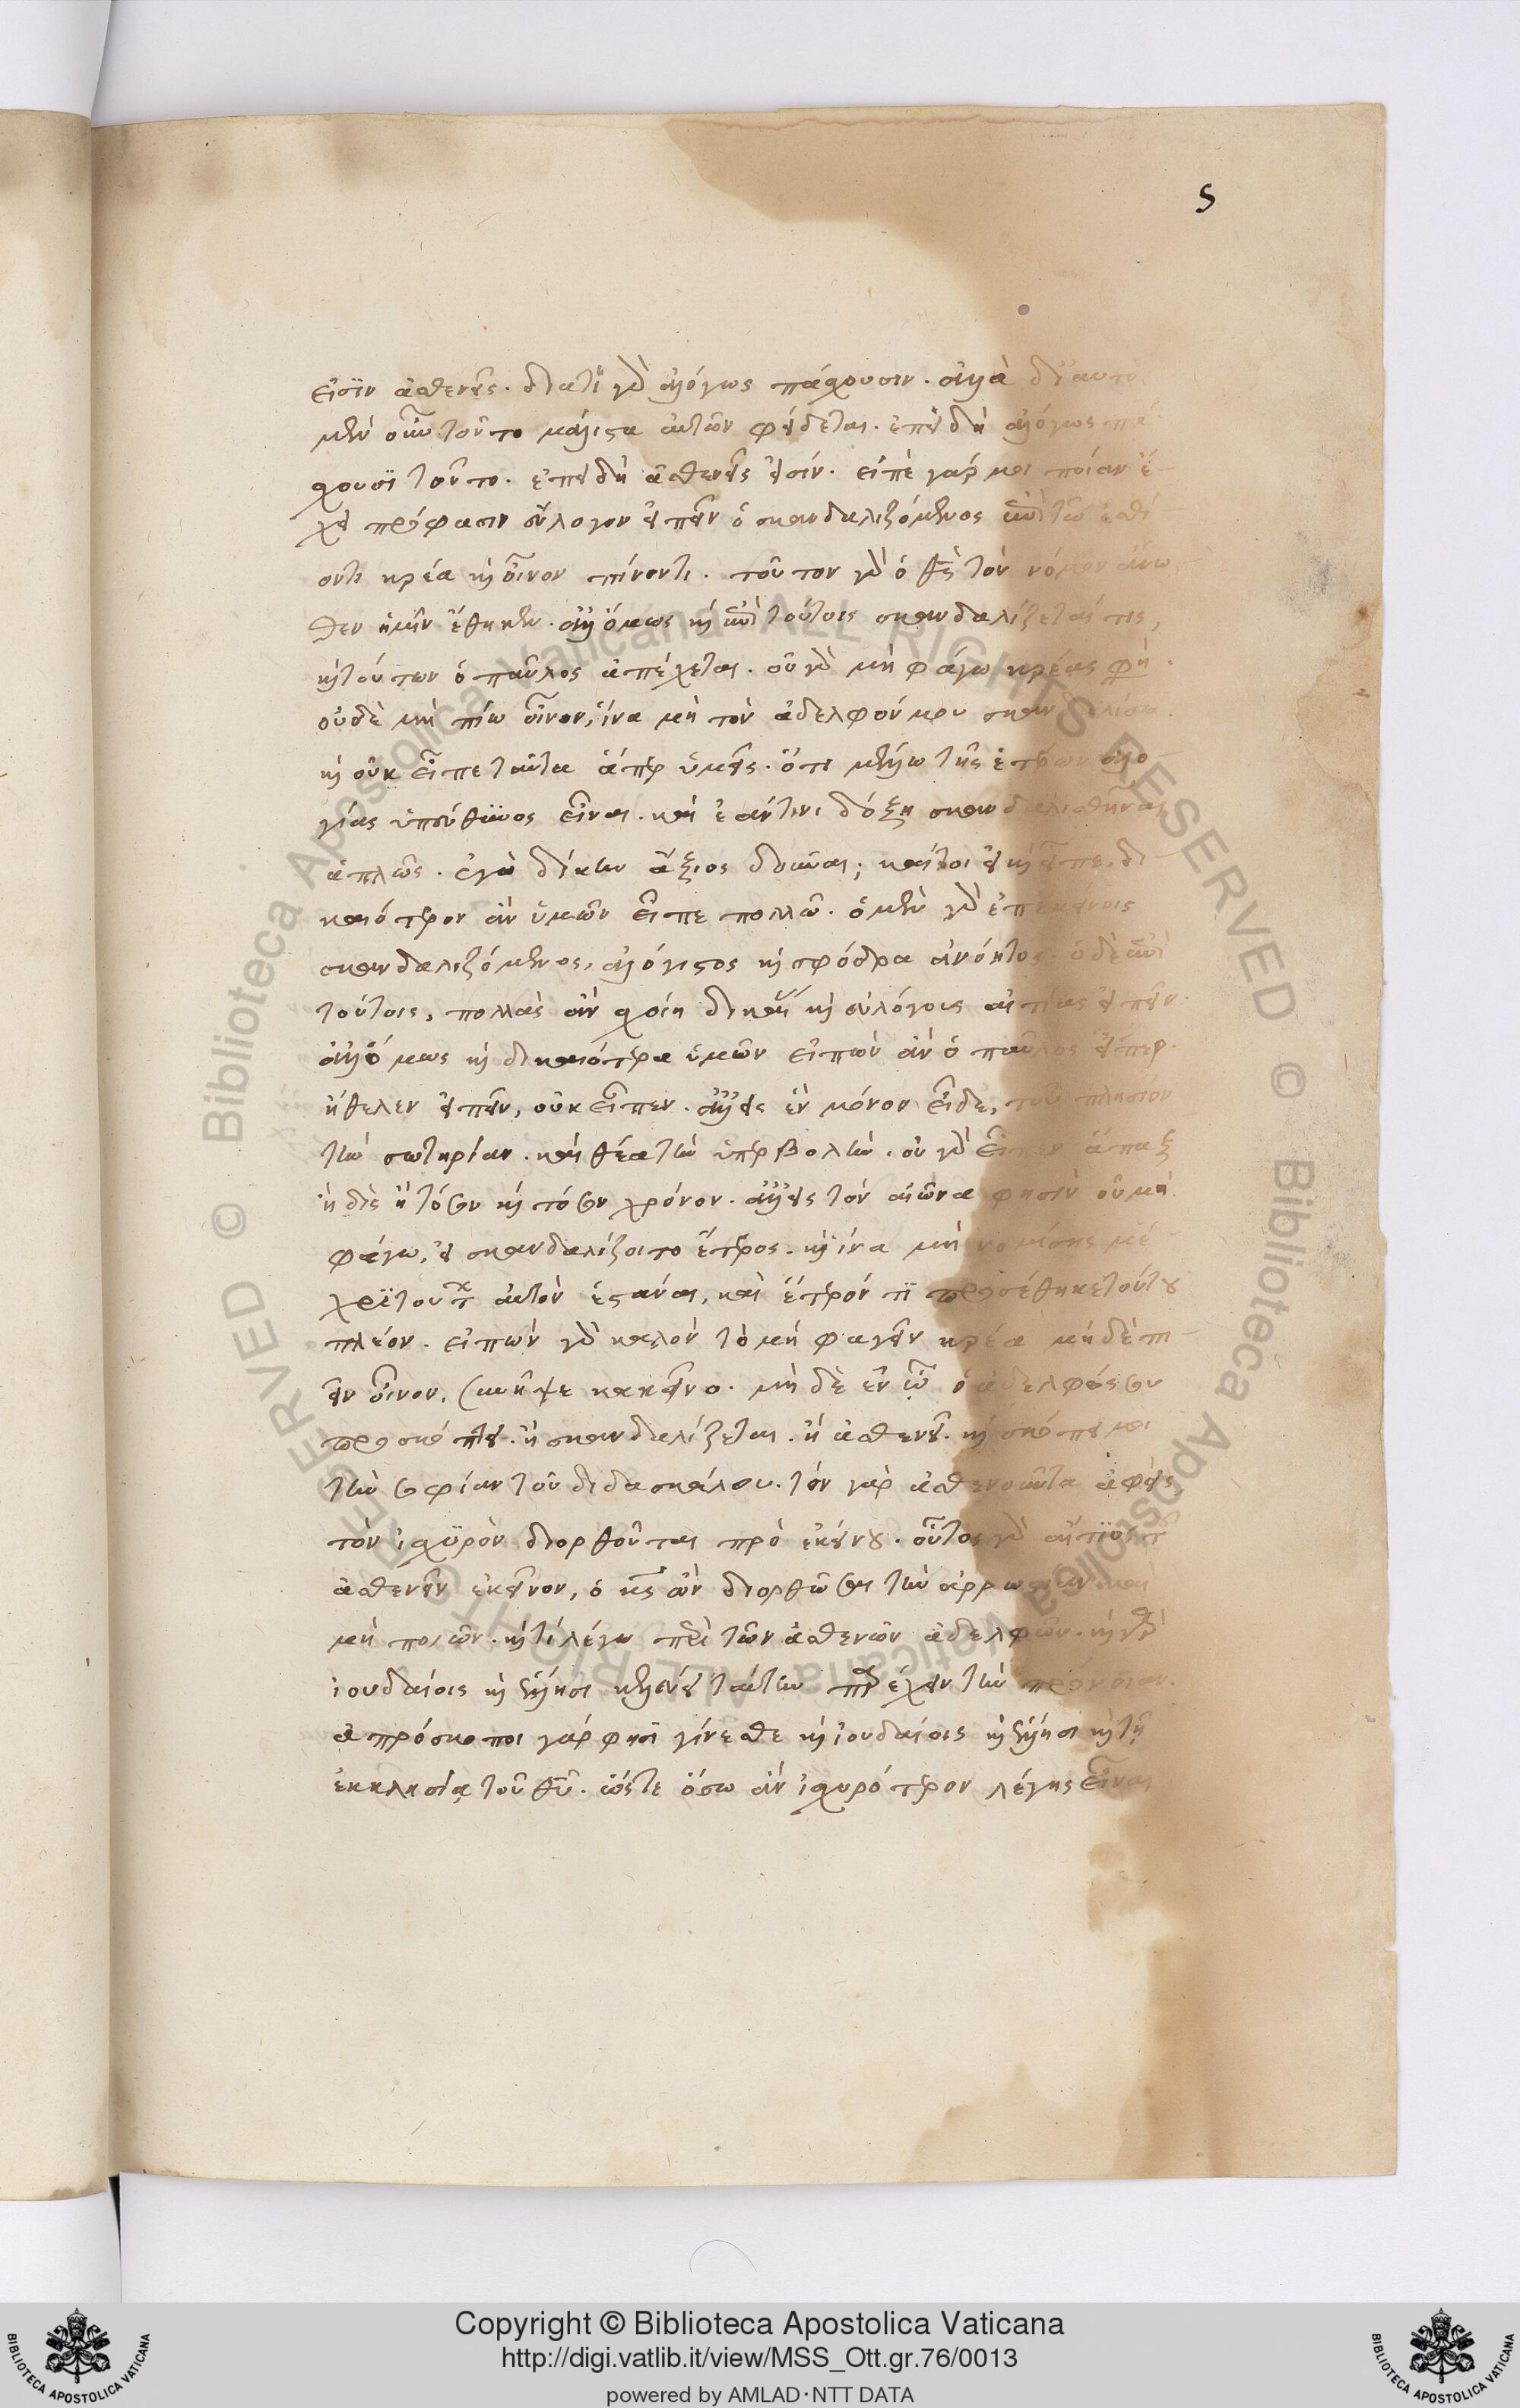 5
εἰσὶν ἀσθενεῖς. διατί γὰρ ἀλόγως πάσχουσιν. ἀλλὰ δι' αυτο
μὲν οὖν τοῦτο μάλιστα αὐτῶν φείδεται. ἐπειδὴ ἀλόγως πά
σχουσι τοῦτο. ἐπειδὴ ἀσθενεῖς εἰσίν. εἰπὲ γάρ μοι ποίαν ἔ-
χει πρόφασιν εὔλογον εἰπεῖν ὁ σκανδαλιζόμενος ἐπὶ τῶ ἐσθί-
οντι κρέα καὶ οἶνον πίνοντι. τοῦτον γὰρ ὁ θς τὸν νόμον ἄνω-
θεν ἡμῖν ἔθηκεν. ἀλλ' ὅμως καὶ ἐπὶ τούτοις σκανδαλίζεταί τις,
καὶ τούτων ὁ παῦλος ἀπέχεται. οὐ γὰρ μὴ φάγω κρέας φη.
οὐδὲ μὴ πίω οἶνον, ἵνα μὴ τὸν ἀδελφόν μου σκανδαλίσω.
καὶ οὐκ εἶπε ταῦτα ἅπερ ὑμεῖς. ὅτι μὲν γὼ τῆς ἑτέρων ἀλο-
γίας ὑπεύθυνος εἶναι. κἂν ἐάν τινι δόξη σκανδαλισθῆναι
ἁπλῶς. ἐγὼ δίκην ἄξιος δοῦναι; καίτοι εἰ καὶ εἶπε, δι
καιότερον ἂν ὑμῶν εἶπε πολλῶ. ὁ μὲν γὰρ ἐπ' ἐκείνοις
σκανδαλιζόμενος, ἀλόγιστος καὶ σφόδρα ἀνόητος. ὁ δὲ ἐπὶ
τούτοις, πολλὰς ἂν σχοίη δικαί καὶ εὐλόγους αἰτίας εἰπεῖν.
ἀλλ' ὅμως καὶ δικαιότερα ὑμῶν εἰπὼν ἂν ὁ παῦλος εἴπερ
ἤθελεν εἰπεῖν, οὐκ εἶπεν. ἀλλ' εἰς ἓν μόνον εἶδε, τοῦ πλησίον
τὴν σωτηρίαν. καὶ θέα τὴν ὑπερβολήν. οὐ γὰρ εἶπεν ἅπαξ
ἢ δὶς ἢ τόσον καὶ τόσον χρόνον. ἀλλ' εἰς τὸν αἰῶνα φησὶν οὐ μὴ
φάγω, εἰ σκανδαλίζοιτο ἕτερος. καὶ ἵνα μὴ νομίσης μέ
χρι τούτ αὐτὸν ἑστάναι, καὶ ἕτερόν τι προσέθηκε τούτου
πλέον. εἰπὼν γὰρ καλὸν τὸ μὴ φαγεῖν κρέα μηδὲ πι-
εῖν οἶνον, συνῆψε κακεῖνο. μηδὲ ἐν ὧ ὁ ἀδελφός σου
προσκόπτει. ἢ σκανδαλίζεται. ἢ ἀσθενεῖ. καὶ σκόπει μοι
τὴν σοφίαν τοῦ διδασκάλου. τὸν γὰρ ἀσθενοῦντα ἀφεὶς,
τὸν ἰσχυρὸν διορθοῦται πρὸ ἐκείνου. οὗτος γὰρ αἴτιος τ
ἀσθενεῖν ἐκεῖνον, ὁ κς ὢν διορθῶσαι τὴν ἀρρωστίαν καὶ
μὴ ποιῶν. καὶ τί λέγω περὶ τῶν ἀσθενῶν ἀδελφῶν. καὶ γὰρ
ἰουδαίοις καὶ ἕλλησι κελεύει ταύτην παρέχειν τὴν πρόνοιαν.
ἀπρόσκοποι γάρ φησι γίνεσθε καὶ ἰουδαίοις καὶ ἕλλησι καὶ τῆ
ἐκκλησία τοῦ θυ. ὥστε ὅσω ἂν ἰσχυρότερον λέγης εἶναι
© Biblioteca Apostolica Vaticana ALL RIGHTS RESERVED
© Biblioteca Apostolica Vaticana ALL RIGHTS RESERVED
Copyright © Biblioteca Apostolica Vaticana
http://digi.vatlib.it/view/MSS_Ott.gr.76/0013
powered by AMLAD·NTT DATA
BIBLIOTECA APOSTOLICA VATICANA
BIBLIOTECA APOSTOLICA VATICANA